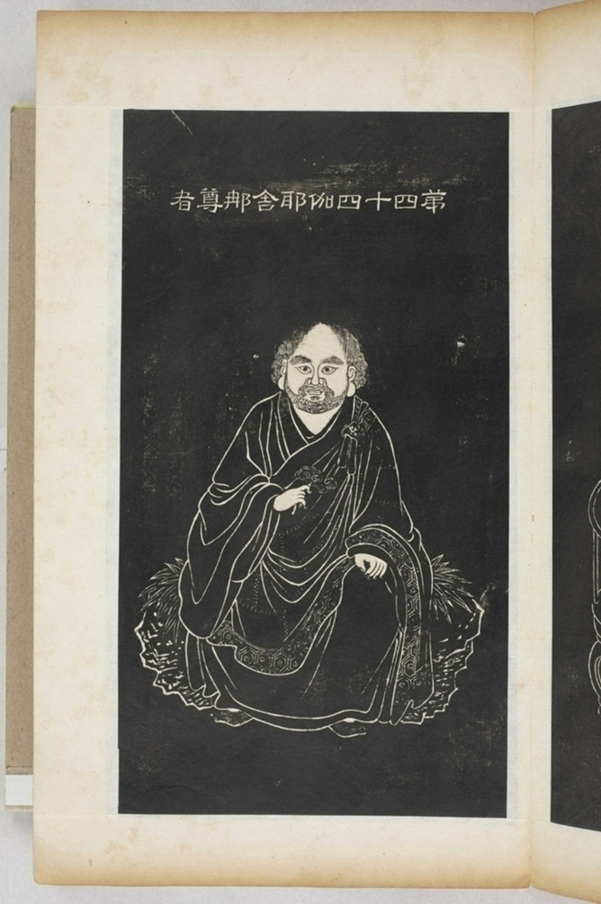 第四十四伽耶舍𨚗尊者